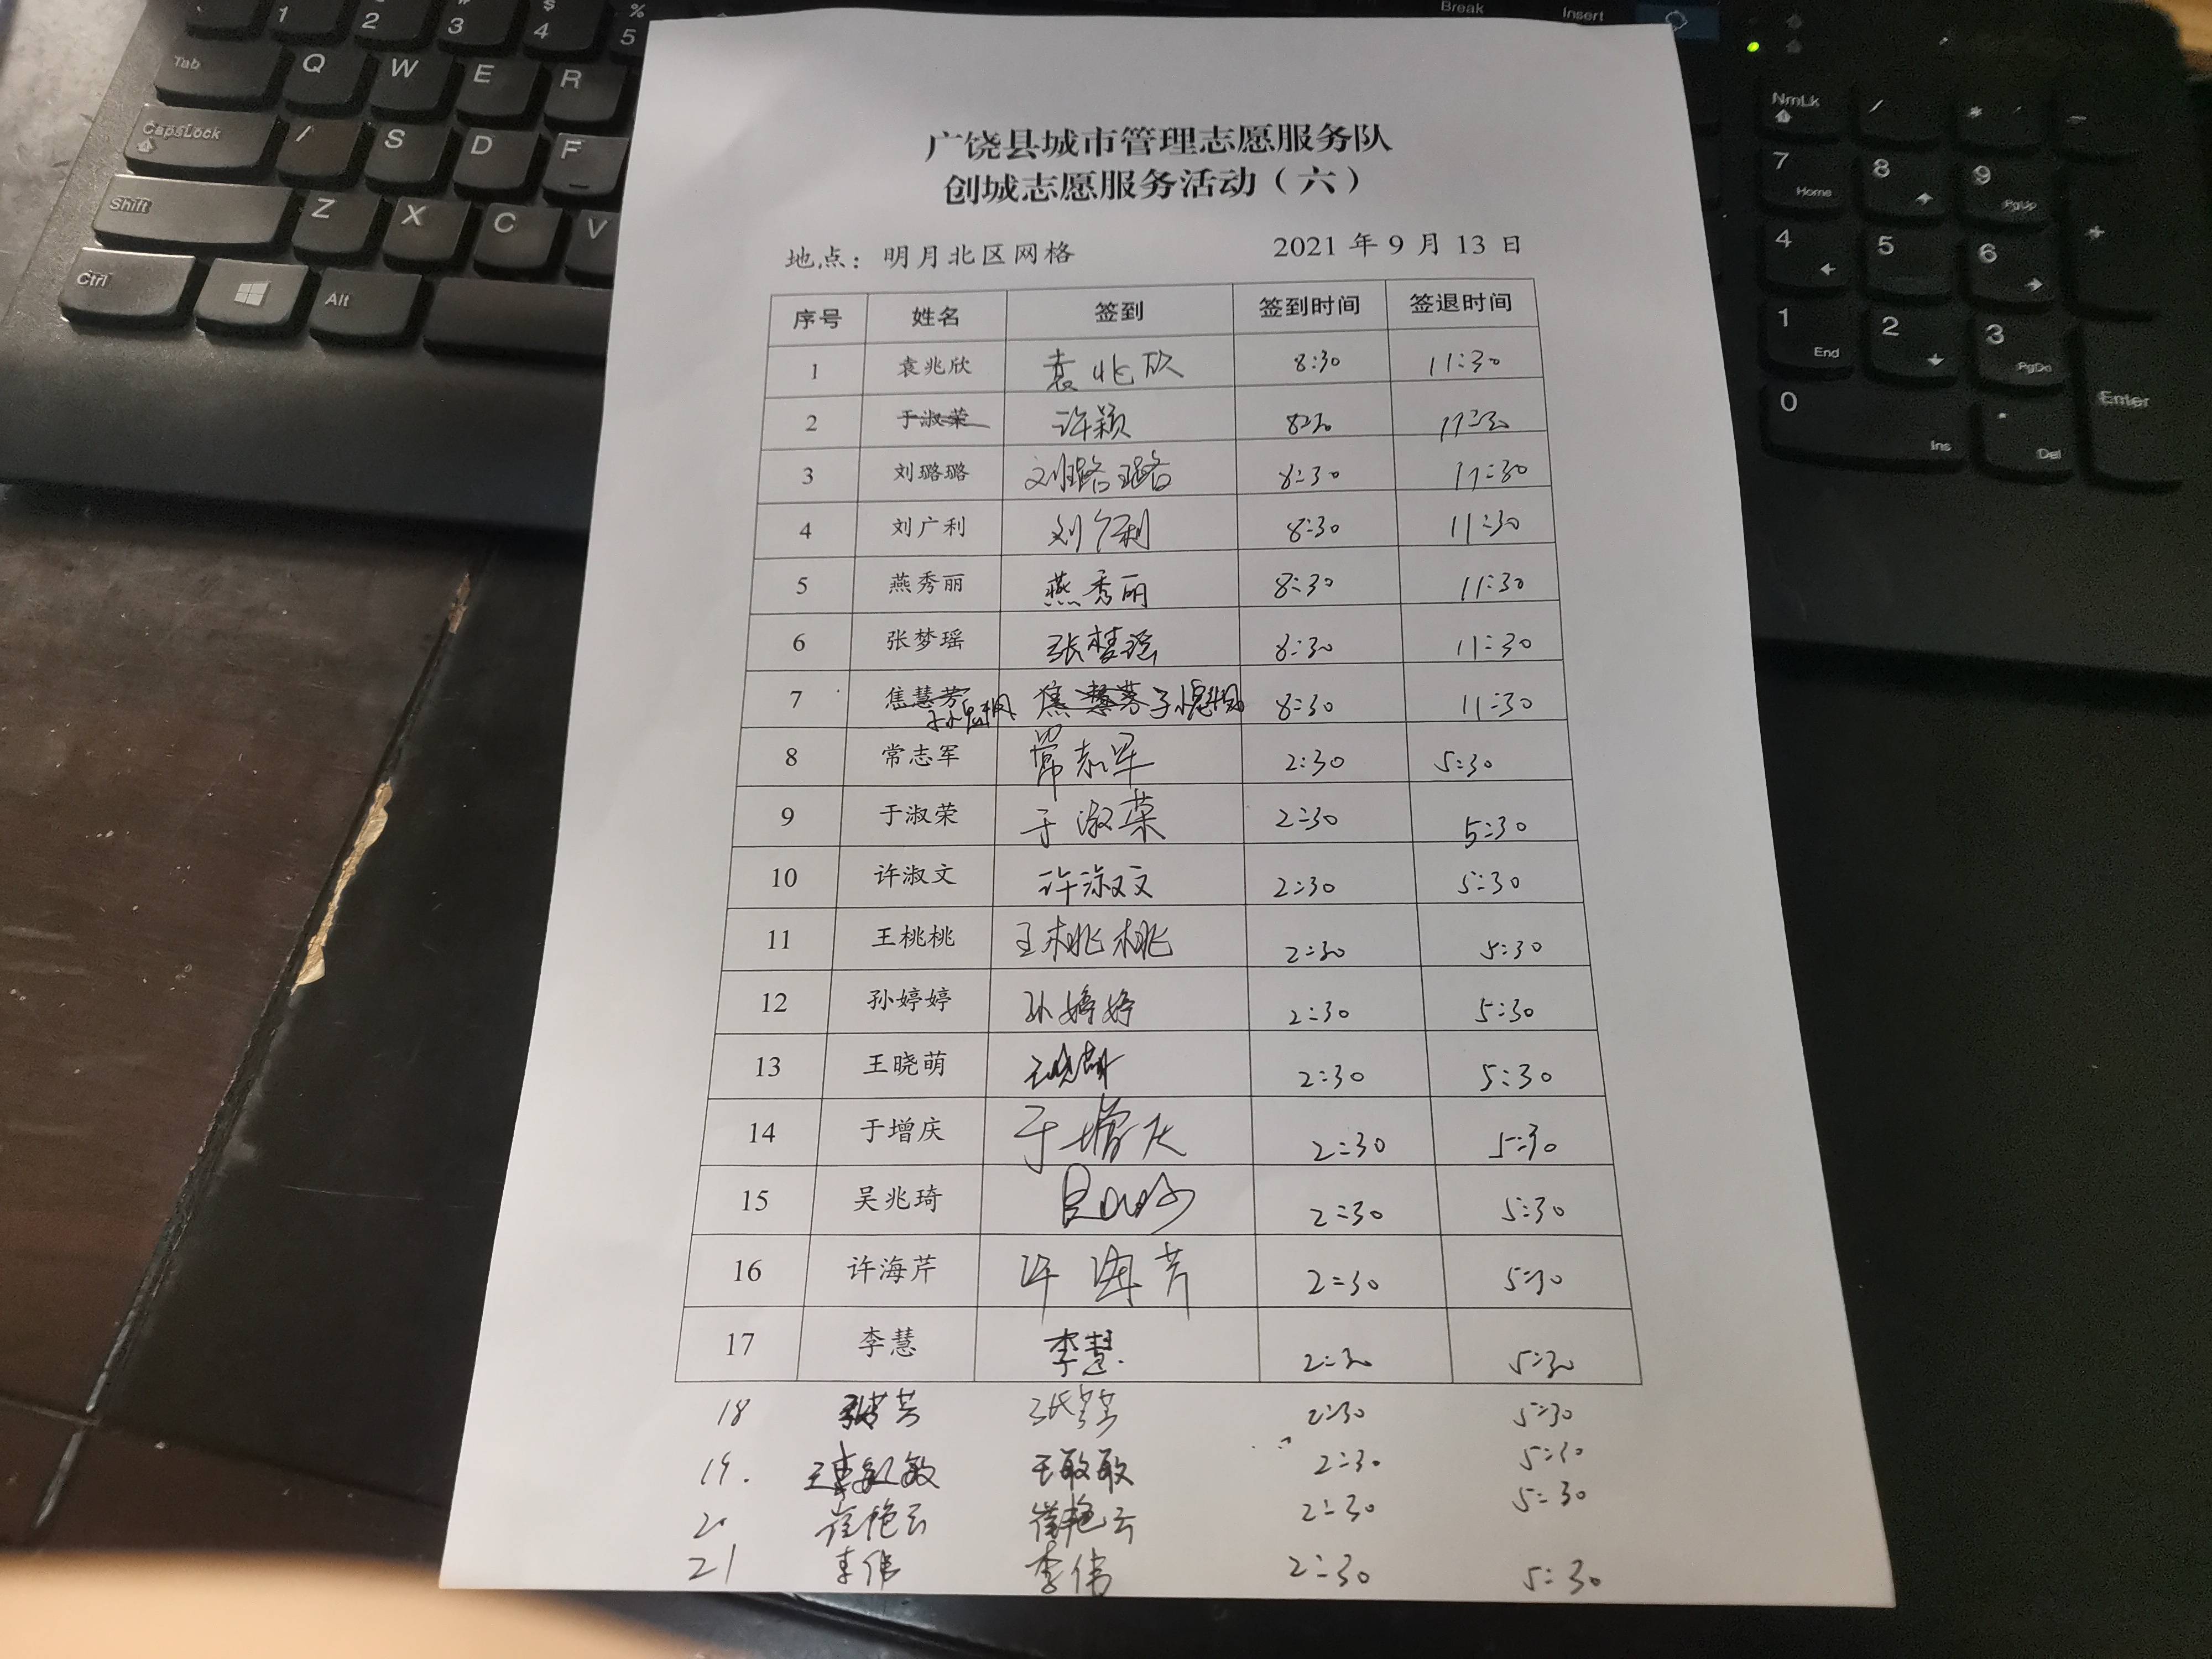 广饶县城市管理志愿服务队
创城志愿服务活动（六）
地点：明月北区网格 2021 年 9 月 13 日
序号 姓名 签到 签到时间 签退时间
1 袁兆欣 袁兆欣 8:30 11:30
2 于淑荣 许颖 8:30 11:30
3 刘璐璐 刘璐璐 8:30 11:30
4 刘广利 刘广利 8:30 11:30
5 燕秀丽 燕秀丽 8:30 11:30
6 张梦瑶 张梦瑶 8:30 11:30
7 焦慧芳 焦慧芳 8:30 11:30
8 常志军 常志军 2:30 5:30
9 于淑荣 于淑荣 2:30 5:30
10 许淑文 许淑文 2:30 5:30
11 王桃桃 王桃桃 2:30 5:30
12 孙婷婷 孙婷婷 2:30 5:30
13 王晓萌 王晓萌 2:30 5:30
14 于增庆 于增庆 2:30 5:30
15 吴兆琦 2:30 5:30
16 许海芹 许海芹 2:30 5:30
17 李慧 李慧 2:30 5:30
18 2:30 5:30
19. 王敢敢 2:30 5:30
20 崔艳云 崔艳云 2:30 5:30
21 李伟 李伟 2:30 5:30
Tab Q W E R
CapsLock S D F
Shift Z X C V
Ctrl Alt
1 2 3 4 $ 5 %
Break Insert
NmLk / * -
7 Home 8 9 PgUp +
4 5 6
1 End 2 3 PgDn Enter
0 Ins . Del